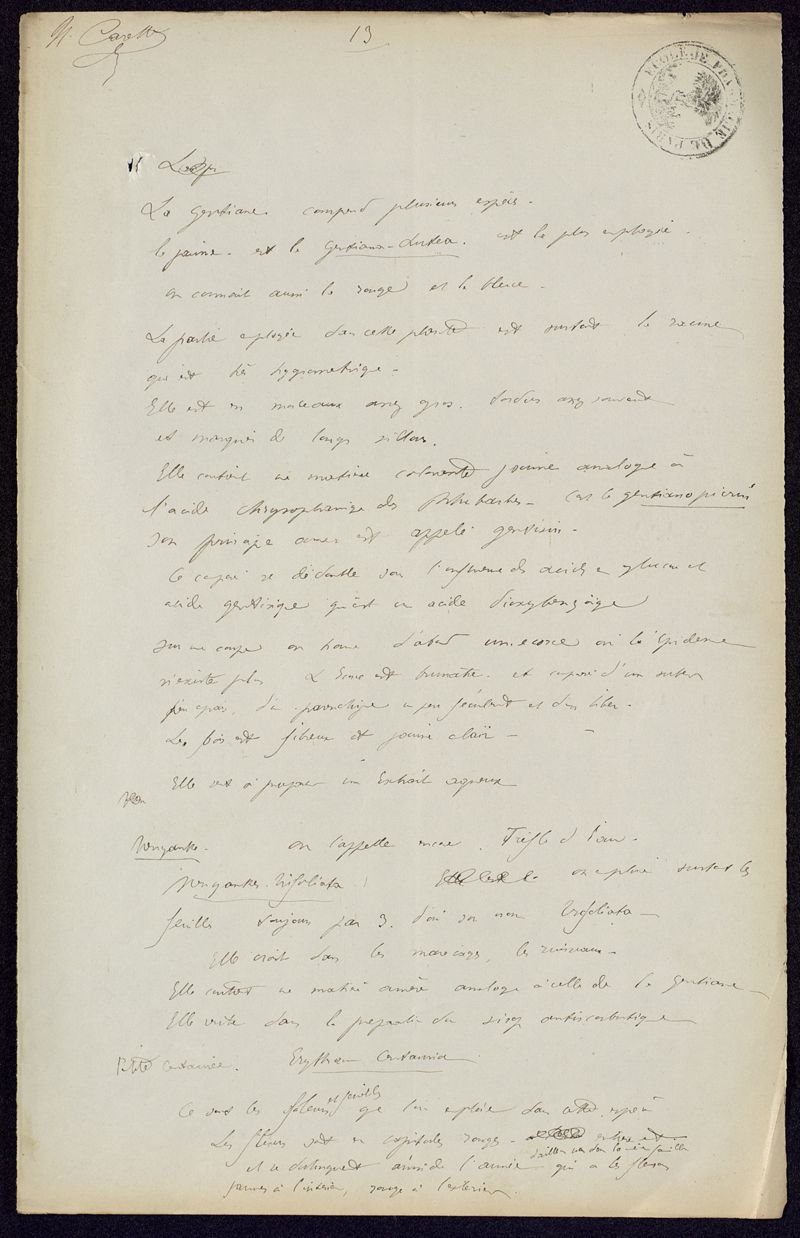 13
ECOLE DE PHARMACIE DE PARIS
La gentiane comprend plusieurs espèces.
la jaune. est la Gentiana-Lutea. est la plus employée.
on connait aussi la rouge et la bleue.
La partie employée dans cette plante est surtout la racine
qui est très hygrometrique.
Elle est en morceaux assez gros. tordus assez souvent
et marqués de longs sillons.
Elle contient une matière colorante jaune analogue à
l'acide chrysophanique des Rhubarbes. c'est le gentianopicrin
son principe amer est appelé gentisin.
Ce corps se dédouble sous l'influence des acides en glucose et
acide gentisique qui est un acide dioxybenzoïque
Sur une coupe on trouve d'abord une ecorce où l'épiderme
n'existe plus. L'Ecorce est brunatre. et composé d'un suber
peu épais, d'un parenchyme un peu féculent et d'un liber.
Le bois est fibreux et jaune clair
Elle sert à préparer un Extrait aqueux
Menyanthe. on l'appelle encore. Trèfle d'eau.
Menyanthes. trifoliata. on emploie surtout les
feuilles toujours par 3. d'où son nom trifoliata
Elle croit dans les marecages, les ruisseaux.
Elle contient une matière amère analogue à celle de la gentiane
Elle entre dans la preparation du sirop antiscorbutique
Petite centaurée. Erythraea Centaurium
Ce sont les fleurs et feuilles que l'on emploie dans cette espèce
Les fleurs sont en capitules rouges.
d'ailleurs pas dans la même famille
et se distinguent ainsi de l'arnica qui a les fleurs
jaunes à l'intérieur, rouge à l'extérieur.